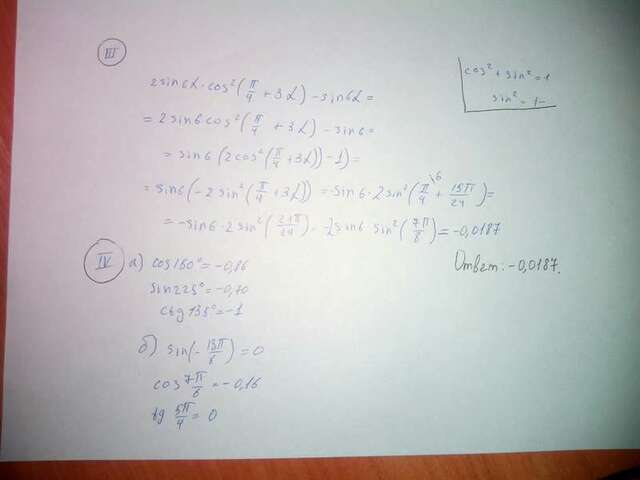 III
2sin6α·cos²(π/4 + 3α) - sin6α =
= 2sin6cos²(π/4 + 3α) - sin6 =
= sin6(2cos²(π/4 + 3α)) - 1) =
= sin6(-2sin²(π/4 + 3α)) = sin6·2sin²(π/4 + 15π/24) =
= -sin6·2sin²(21π/24) = -2sin6·sin²(7π/8) = -0,0187
cos² + sin² = 1
sin² = 1-
Ответ: -0,0187.
IV а) cos150° = -0,86
sin225° = -0,70
ctg135° = -1
б) sin(-13π/6) = 0
cos 7π/6 = -0,16
tg 5π/4 = 0